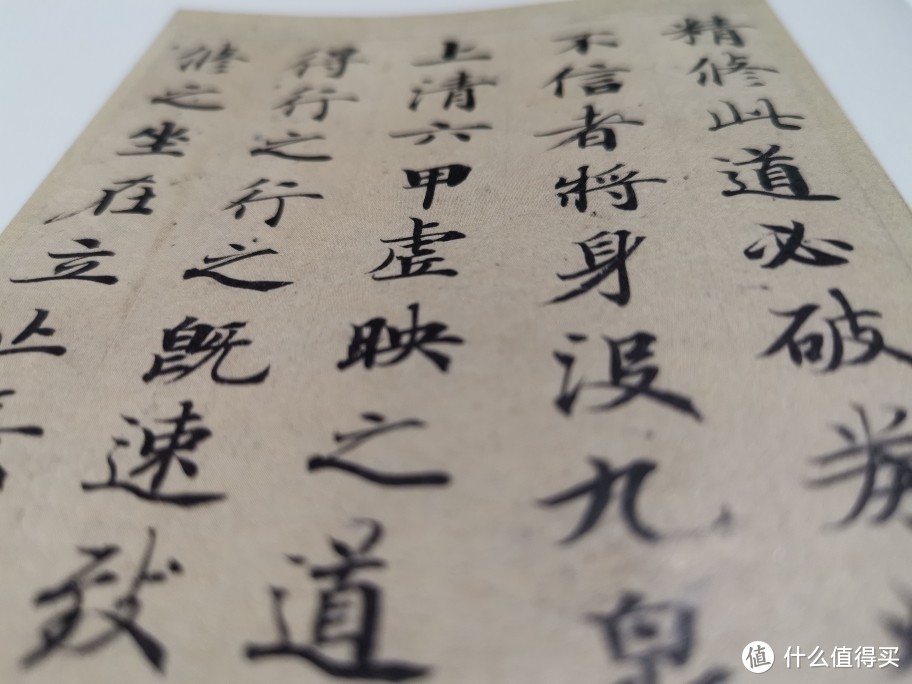 精修此道必破券
不信者將身没九泉
上清六甲虛映之道
得行之行之既速致
修之坐在立
值 什么值得买